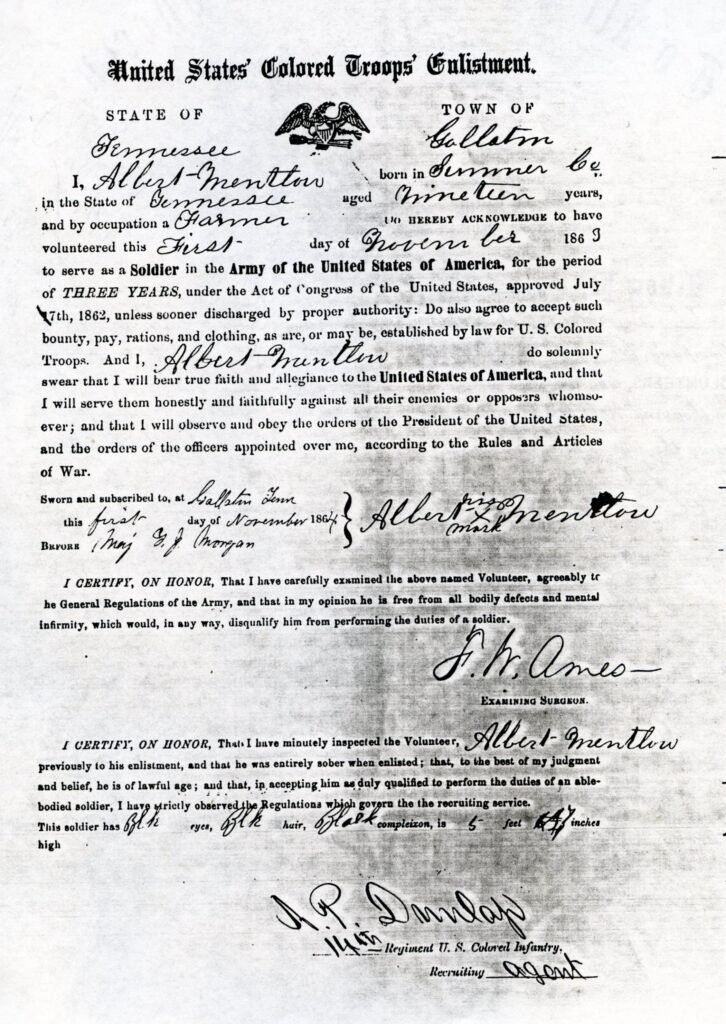 United States' Colored Troops' Enlistment.
STATE OF TOWN OF
Tennessee Gallatin
I, Albert Mentlow born in Sumner Co.
in the State of Tennessee aged Nineteen years,
and by occupation a Farmer DO HEREBY ACKNOWLEDGE to have
volunteered this First day of November 1863
to serve as a Soldier in the Army of the United States of America, for the period
of THREE YEARS, under the Act of Congress of the United States, approved July
17th, 1862, unless sooner discharged by proper authority: Do also agree to accept such
bounty, pay, rations, and clothing, as are, or may be, established by law for U. S. Colored
Troops. And I, Albert Mentlow do solemnly
swear that I will bear true faith and allegiance to the United States of America, and that
I will serve them honestly and faithfully against all their enemies or opposers whomso-
ever; and that I will observe and obey the orders of the President of the United States,
and the orders of the officers appointed over me, according to the Rules and Articles
of War.
Sworn and subscribed to, at Gallatin Tenn
this first day of November 1864
BEFORE Maj T. J. Morgan
Albert his X mark Mentlow
I CERTIFY, ON HONOR, That I have carefully examined the above named Volunteer, agreeably to
he General Regulations of the Army, and that in my opinion he is free from all bodily defects and mental
infirmity, which would, in any way, disqualify him from performing the duties of a soldier.
F. W. Ames
EXAMINING SURGEON.
I CERTIFY, ON HONOR, That I have minutely inspected the Volunteer, Albert Mentlow
previously to his enlistment, and that he was entirely sober when enlisted; that, to the best of my judgment
and belief, he is of lawful age; and that, in accepting him as duly qualified to perform the duties of an able-
bodied soldier, I have strictly observed the Regulations which govern the recruiting service.
This soldier has Blk eyes, Blk hair, Black compleixon, is 5 feet inches
high
P. Dunlap
14th Regiment U. S. Colored Infantry,
Recruiting agent